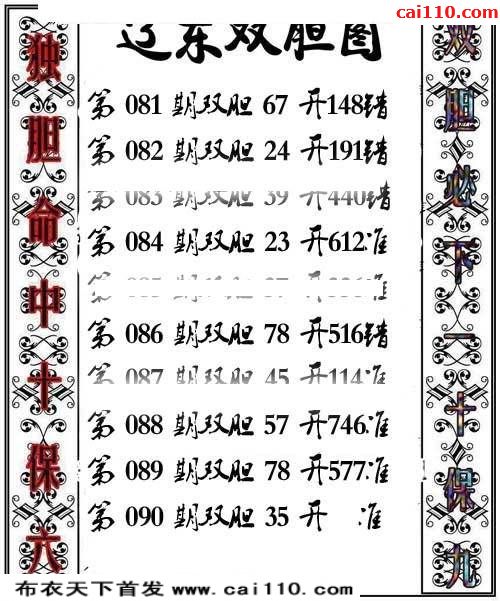 cai110.com
辽东双胆图
独胆命中十保六
第 081 期双胆 67 开148错
第 082 期双胆 24 开191错
第 083 期双胆 39 开440错
第 084 期双胆 23 开612准
期双胆 准
第 086 期双胆 78 开516错
第 087 期双胆 45 开114准
第 088 期双胆 57 开746准
第 089 期双胆 78 开577准
第 090 期双胆 35 开 准
双胆必下一十保九
布衣天下首发 www.cai110.com